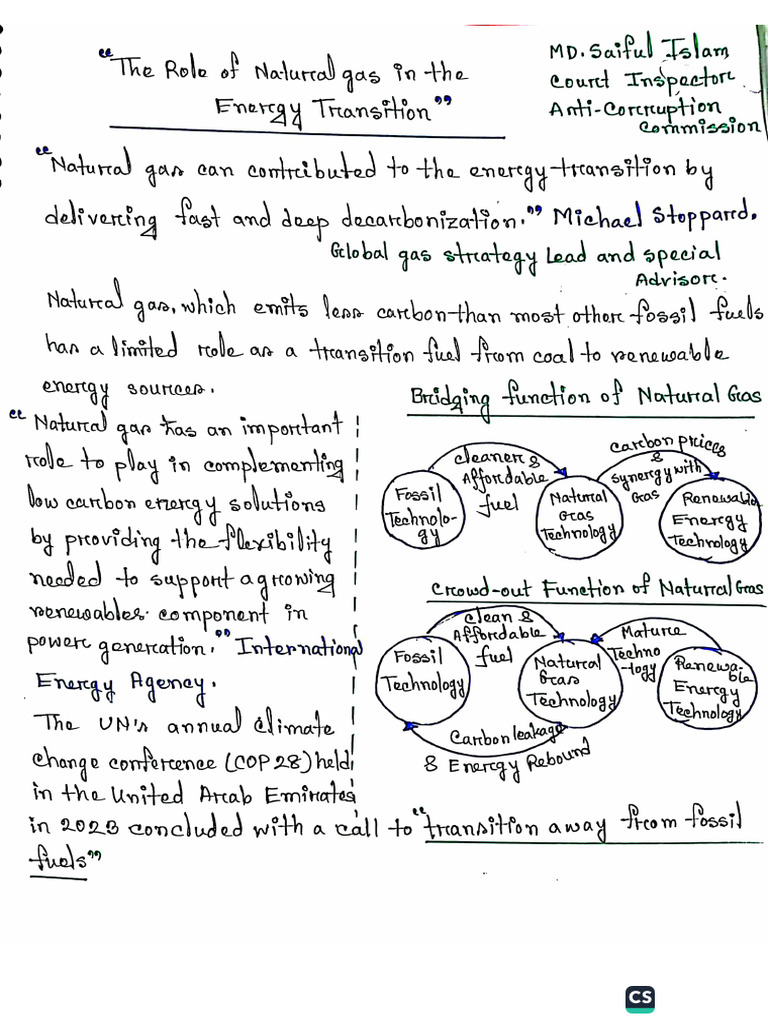 "The Role of Natural gas in the
Energy Transition"
MD. Saiful Islam
Court Inspector
Anti-Corruption
Commission
"Natural gas can contributed to the energy-transition by
delivering fast and deep decarbonization." Michael Stoppard.
Global gas strategy Lead and special
Advisor.
Natural gas, which emits less carbon than most other fossil fuels
has a limited role as a transition fuel from coal to renewable
energy sources.
"Natural gas has an important
role to play in complementing
low carbon energy solutions
by providing the flexibility
needed to support a growing
renewables component in
power generation." International
Energy Agency.
The UN's annual climate
change conference (COP 28) held
in the United Arab Emirates
in 2023 concluded with a call to "transition away from fossil
fuels"
Bridging function of Natural Gas
Fossil
Technolo-
gy
cleaner &
Affordable
fuel
Natural
Gas
Technology
carbon prices
&
synergy with
Gas
Renewable
Energy
Technology
Crowd-out Function of Natural Gas
Fossil
Technology
clean &
Affordable
fuel
Natural
Gas
Technology
Mature
Techno
-logy
Renewa-
ble
Energy
Technology
Carbon leakage
& Energy Rebound
CS